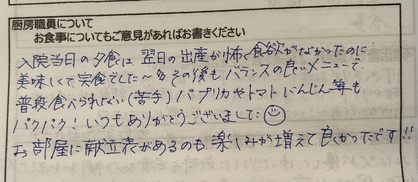 厨房職員について
お食事についてもご意見があればお書きください
入院当日の夕食は、翌日の出産が怖く食欲がなかったのに
美味しくて完食でした〜 その後も バランスの良いメニューで
普段食べられない(苦手)パプリカやトマト にんじん等も
パクパク! いつもありがとうございました☺
お部屋に献立表があるのも、楽しみが増えて良かったです!!